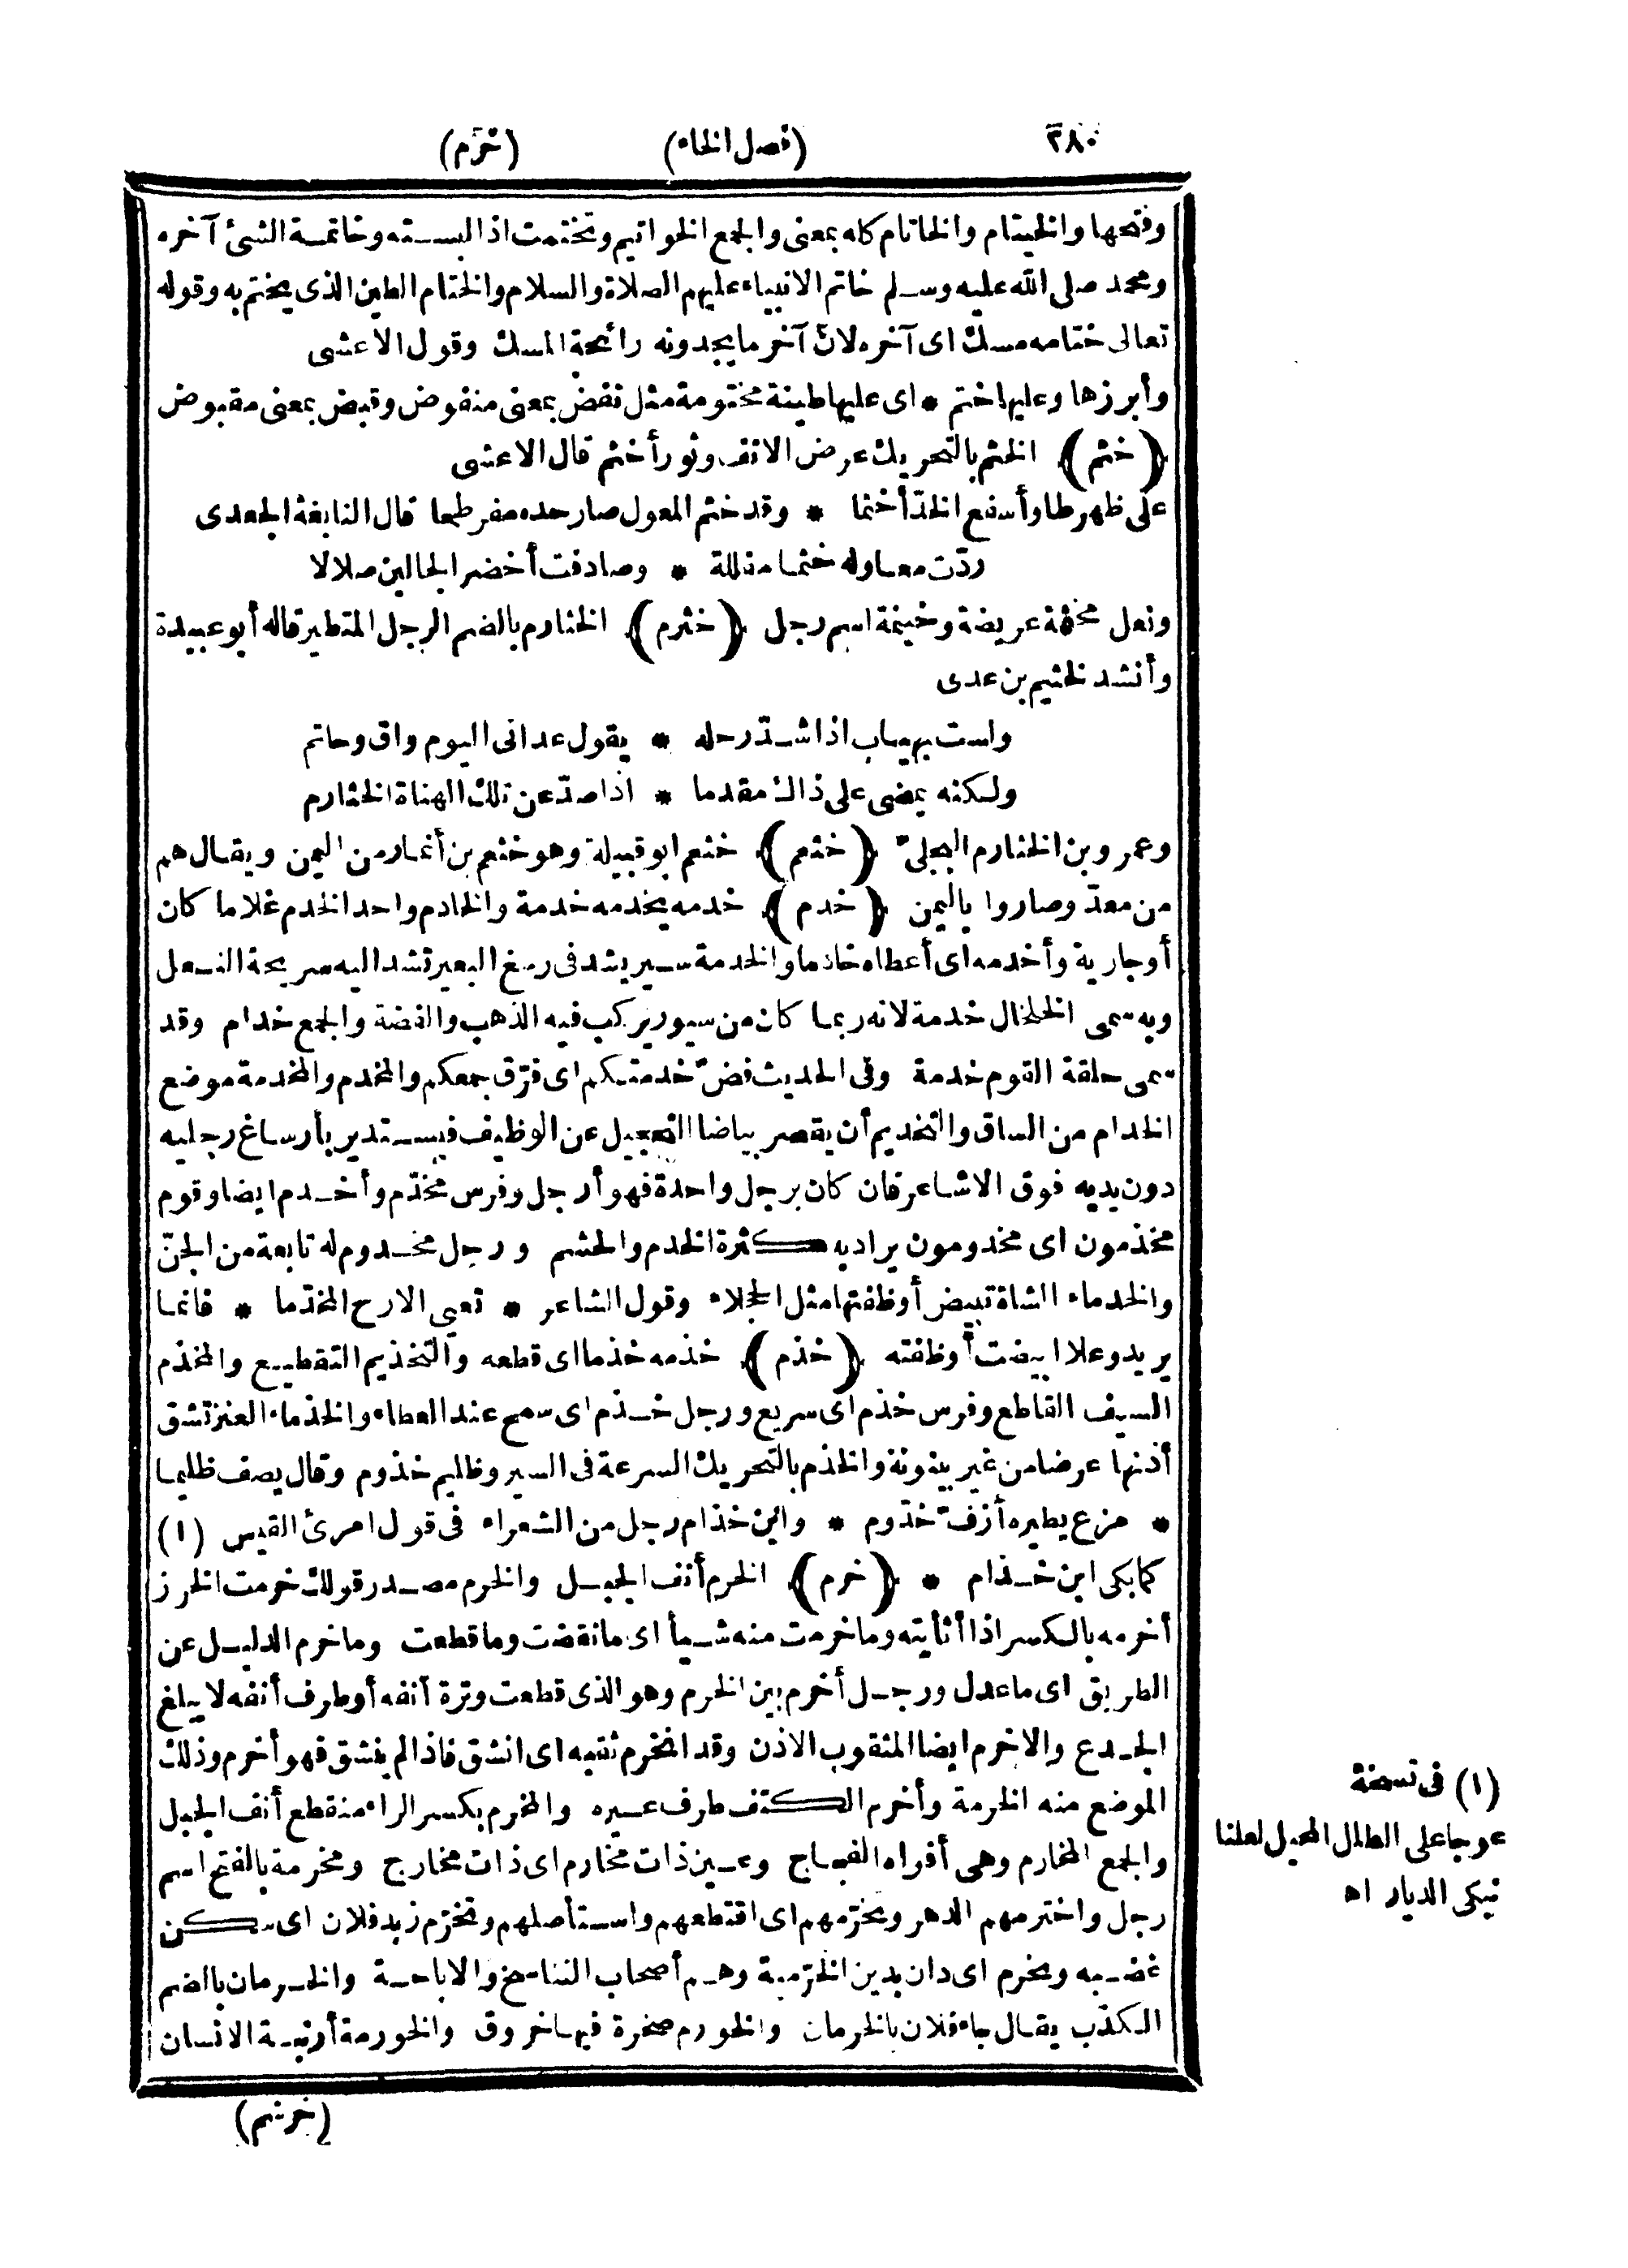 ٢٨٠ (فصل الخاء) (خرم)
وفتحها والخيتام والخاتام كله بمعنى والجمع الخواتيم وتختمت اذا لبسته وخاتمة الشئ آخره
ومحمد صلى الله عليه وسلم خاتم الانبياء عليهم الصلاة والسلام والختام الطين الذى يختم به وقوله
تعالى ختامه مسك اى آخره لان آخر ما يجدونه رائحة المسك وقول الاعشى
وأبرزها وعليها ختم * اى عليها طينة مختومة مثل نفض بمعنى منفوض وقبض بمعنى مقبوض
﴿خثم﴾ الخثم بالتحريك عرض الانف وثور أخثم قال الاعشى
على ظهر طاو أسفع الخدّ أخثما * وقد خثم المعول صار حده مفرطحا قال النابغة الجعدى
ردّت معاوله خثما مفللة * وصادفت أخضر الجالين صلالا
ونعل مخثمة عريضة وخيثمة اسم رجل ﴿خثرم﴾ الخثارم بالضم الرجل المتطير قاله أبو عبيدة
وأنشد لخثيم بن عدى
ولست بهياب اذا شدّ رحله * يقول عدانى اليوم واق وحاتم
ولكنه يمضى على ذاك مقدما * اذا صدّ عن تلك الهناة الخثارم
وعمرو بن الخثارم البجلىّ ﴿خثعم﴾ خثعم ابو قبيلة وهو خثعم بن أنمار من اليمن ويقال هم
من معدّ وصاروا باليمن ﴿خدم﴾ خدمه يخدمه خدمة والخادم واحد الخدم غلاما كان
أو جارية وأخدمه اى أعطاه خادما والخدمة سير يشد فى رسغ البعير تشد اليه سريحة النعل
وبه سمى الخلخال خدمة لانه ربما كان من سيور يركب فيه الذهب والفضة والجمع خدام وقد
سمى حلقة القوم خدمة وفى الحديث فضّ خدمتكم اى فرّق جمعكم والمخدم والمخدمة موضع
الخدام من الساق والتخديم أن يقصر بياض التحجيل عن الوظيف فيستدير بأرساغ رجليه
دون يديه فوق الاشاعر فان كان برجل واحدة فهو أرجل وفرس مخدّم وأخدم ايضا وقوم
مخدّمون اى مخدومون يراد به كثرة الخدم والحشم ورجل مخدوم له تابعة من الجنّ
والخدماء الشاة تبيض أوظفتها مثل الحجلاء وقول الشاعر * تعيى الارح المخدّما * فانما
يريد وعلا ابيضت أوظفته ﴿خذم﴾ خذمه خذما اى قطعه والتخذيم التقطيع والمخذم
السيف القاطع وفرس خذم اى سريع ورجل خذم اى سمح عند العطاء والخذماء العنز تشق
أذنها عرضا من غير بينونة والخذم بالتحريك السرعة فى السير وظليم خذوم وقال يصف ظليما
* مزع يطيره أزفّ خذوم * وابن خذام رجل من الشعراء فى قول امرئ القيس (١)
كما بكى ابن خذام * ﴿خرم﴾ الخرم أنف الجبل والخرم مصدر قولك خرمت الخرز
أخرمه بالكسر اذا أثأيته وما خرمت منه شيأ اى ما نقصت وما قطعت وما خرم الدليل عن
الطريق اى ما عدل ورجل أخرم بين الخرم وهو الذى قطعت وترة أنفه أو طرف أنفه لا يبلغ
الجدع والاخرم ايضا المثقوب الاذن وقد انخرم ثقبه اى انشق فاذا لم ينشق فهو أخرم وذلك
الموضع منه الخرمة وأخرم الكتف طرف عيره والمخرم بكسر الراء منقطع أنف الجبل
والجمع المخارم وهى أفواه الفجاج وعين ذات مخارم اى ذات مخارج ومخرمة بالفتح اسم
رجل واخترمهم الدهر وتخرّمهم اى اقتطعهم واستأصلهم وتخرّم زبد فلان اى سكن
غضبه وتخرم اى دان بدين الخرّمية وهم أصحاب التناسخ والاباحة والخرمان بالضم
الكذب يقال جاء فلان بالخرمان والخورم صخرة فيها خروق والخورمة أرنبة الانسان
(خرشم)
(١) فى نسخة
عوجا على الطلل المحيل لعلنا
نبكى الديار اه